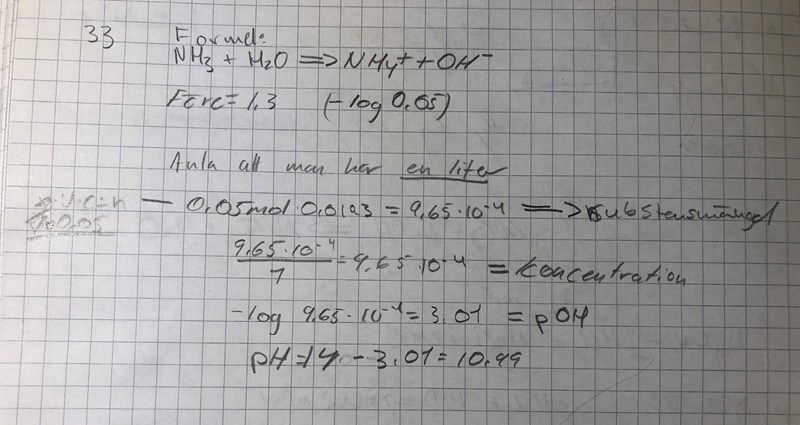 33 Formel:
NH3 + H2O => NH4+ + OH-
Före = 1,3 (-log 0,05)
Anta att man har en liter
v·c=n — 0,05mol·0,0193 = 9,65·10^-4 => substansmängd
0,05
9,65·10^-4 / 1 = 9,65·10^-4 = koncentration
-log 9,65·10^-4 = 3,01 = pOH
pH = 14 - 3,01 = 10,99